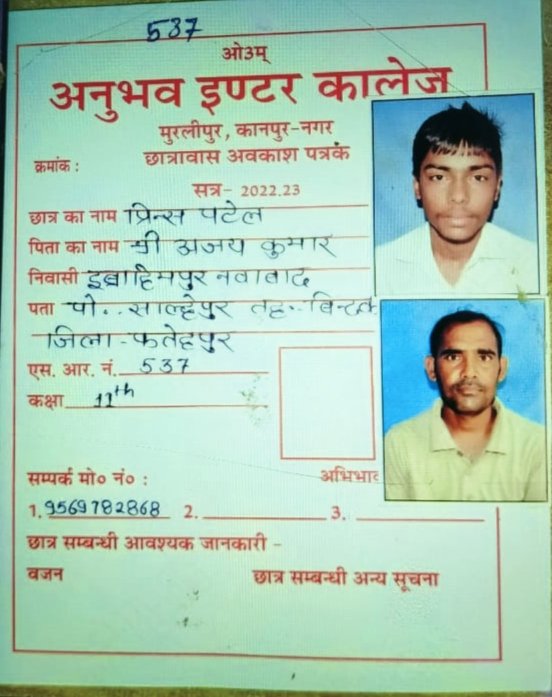 537
ओ३म्
अनुभव इण्टर कालेज
मुरलीपुर, कानपुर-नगर
क्रमांक :
छात्रावास अवकाश पत्रकं
सत्र- 2022.23
छात्र का नाम प्रिन्स पटेल
पिता का नाम श्री अजय कुमार
निवासी इब्राहिमपुर नवावाद
पता पो.. साल्हेपुर तह..
जिला - फतेहपुर
एस. आर. नं. 537
कक्षा 11th
सम्पर्क मो० नं० :
अभिभाव
1. 9569782868 2. 3.
छात्र सम्बन्धी आवश्यक जानकारी -
वजन
छात्र सम्बन्धी अन्य सूचना